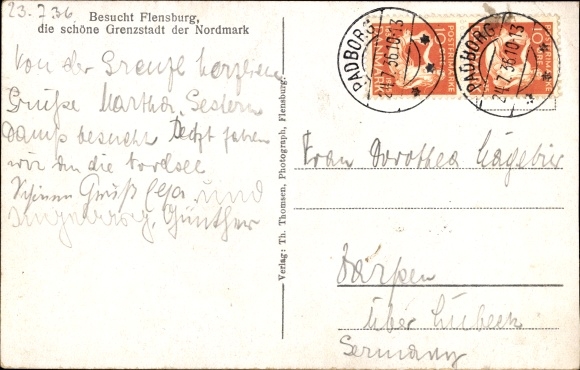 23.7.36
Besucht Flensburg,
die schöne Grenzstadt der Nordmark
Von der Grenze herzlichen
Grüße Martha. Gestern
Damp besucht Jetzt fahren
wir an die Nordsee
Schönen Gruß und
Ingeborg, Günther
Verlag: Th. Thomsen, Photograph, Flensburg.
PADBORG
24.7.36 10-13
PADBORG
24.7.36 10-13
10 ØRE
DANMARK
10 ØRE
Frau Dorothea
Därpen
über Lübeck
Germany